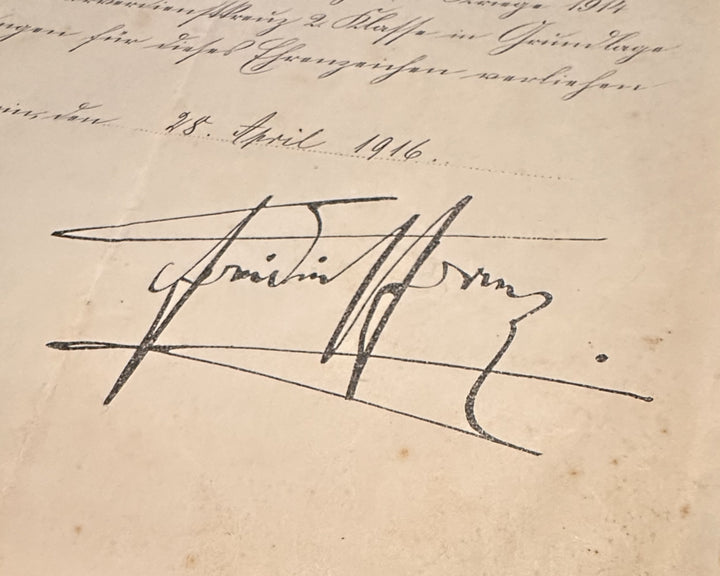 Kriege 1914
verdienstkreuz 2. Klasse in Grundlage
ngen für dieses Ehrenzeichen verliehen
in, den 28. April 1916.
Friedrich Franz.